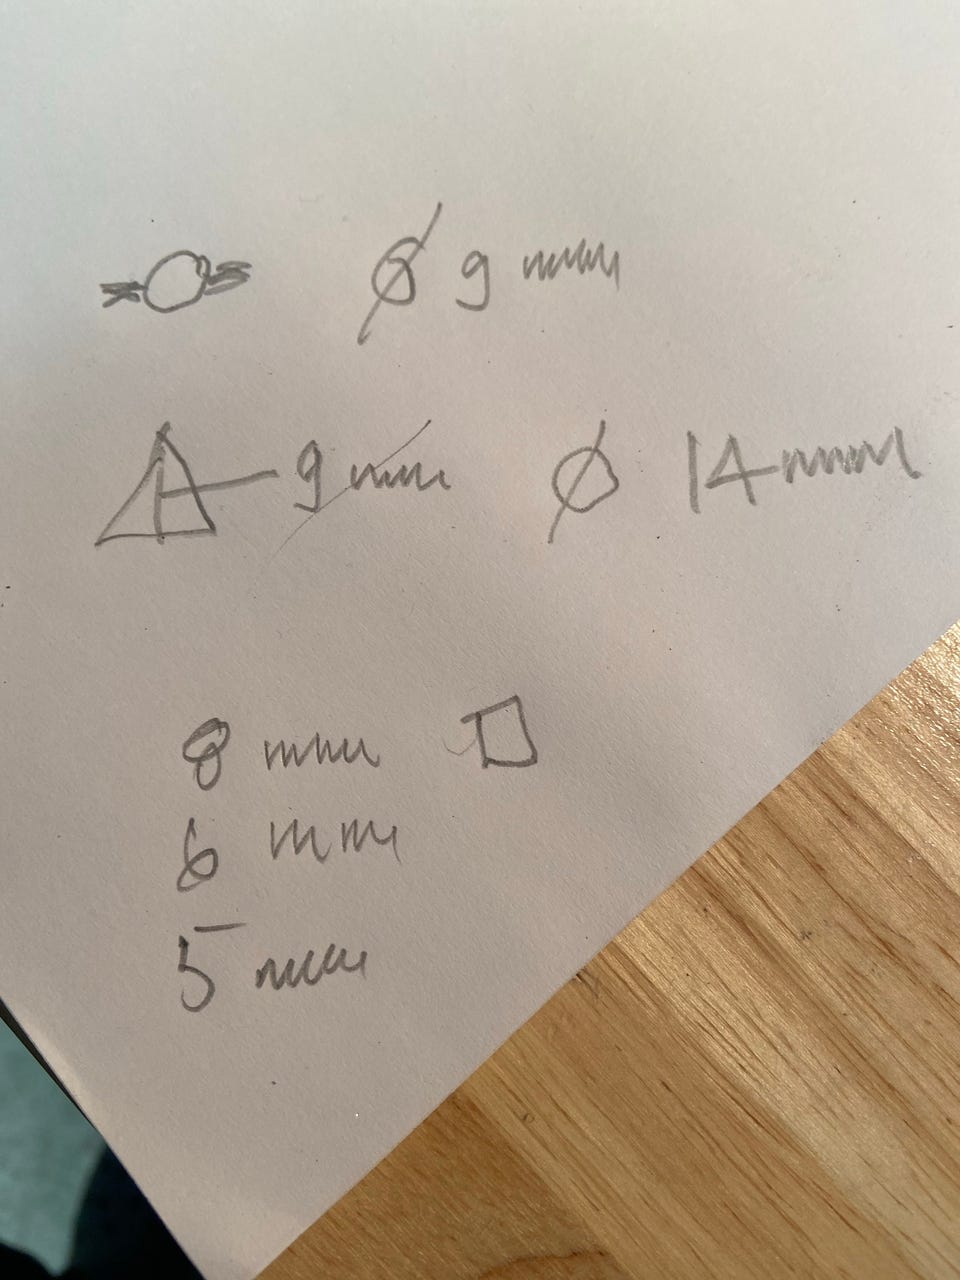 ⌀ 9 mm
9 mm ⌀ 14 mm
8 mm
6 mm
5 mm